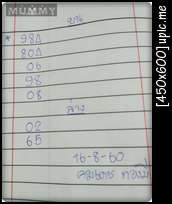 MUMMY
บน
* 98Δ
80Δ
06
98
08
ล่าง
02
65
16-8-60
[450x600] upic.me